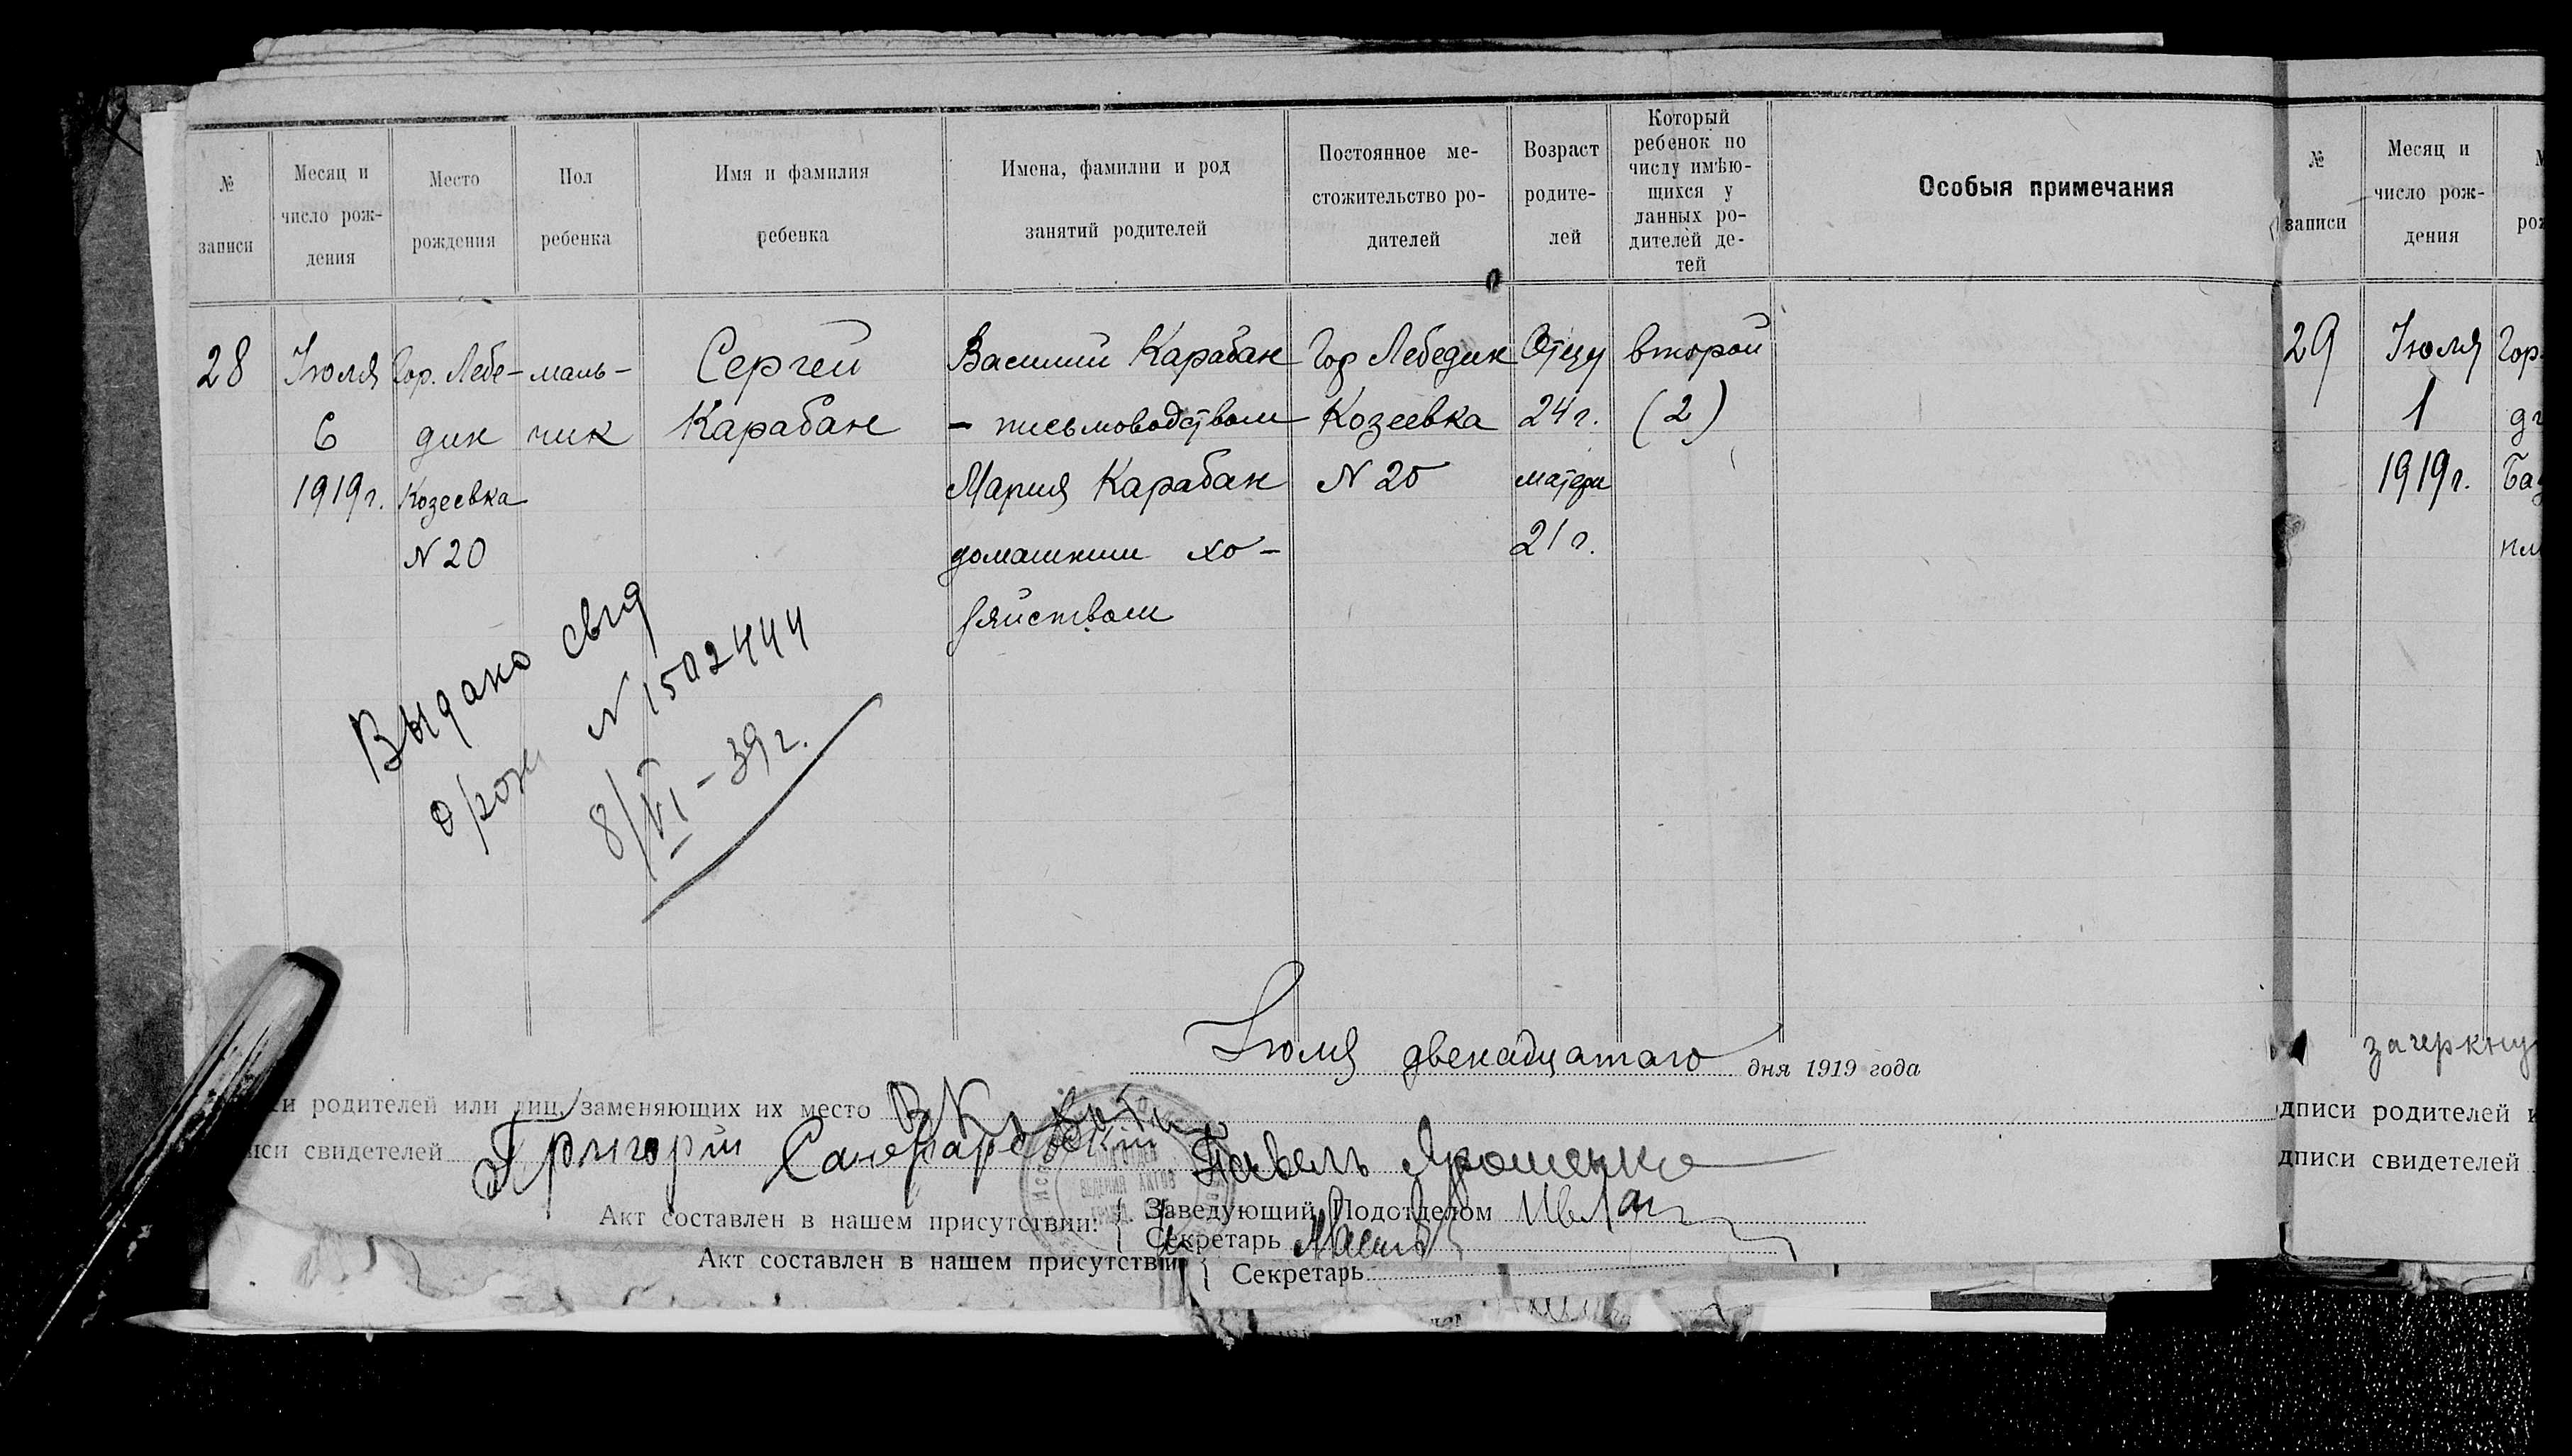 № записи
Месяц и число рождения
Место рождения
Пол ребенка
Имя и фамилия ребенка
Имена, фамилии и род занятий родителей
Постоянное местожительство родителей
Возраст родителей
Который ребенок по числу имѣющихся у данных родителей детей
Особыя примечания
28
Іюля
6
1919 г.
Гор. Лебе-
дин
Козеевка
N 20
маль-
чик
Сергей
Карабан
Василий Карабан
- письмоводством
Мария Карабан
домашним хо-
зяйством
Гор Лебедин
Козеевка
N 20
Отцу
24 г.
матери
21 г.
второй
(2)
Выдано свид
о рож N 1502444
8/VI - 39 г.
Іюля двенадцатаго дня 1919 года
родителей или лиц, заменяющих их место
свидетелей Григорій Павелъ Ярошенко
Акт составлен в нашем присутствии:
Заведующий Подотделом
Секретарь
Акт составлен в нашем присутствии
Секретарь
№ записи
Месяц и число рождения
29
Іюля
1
1919 г.
Гор.
зачеркну
дписи родителей и
дписи свидетелей